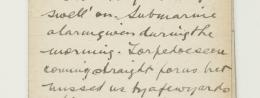 swell' on. Submarine
alarm given during the
morning. Torpedo seen
coming straight for us but
missed us by a few yards